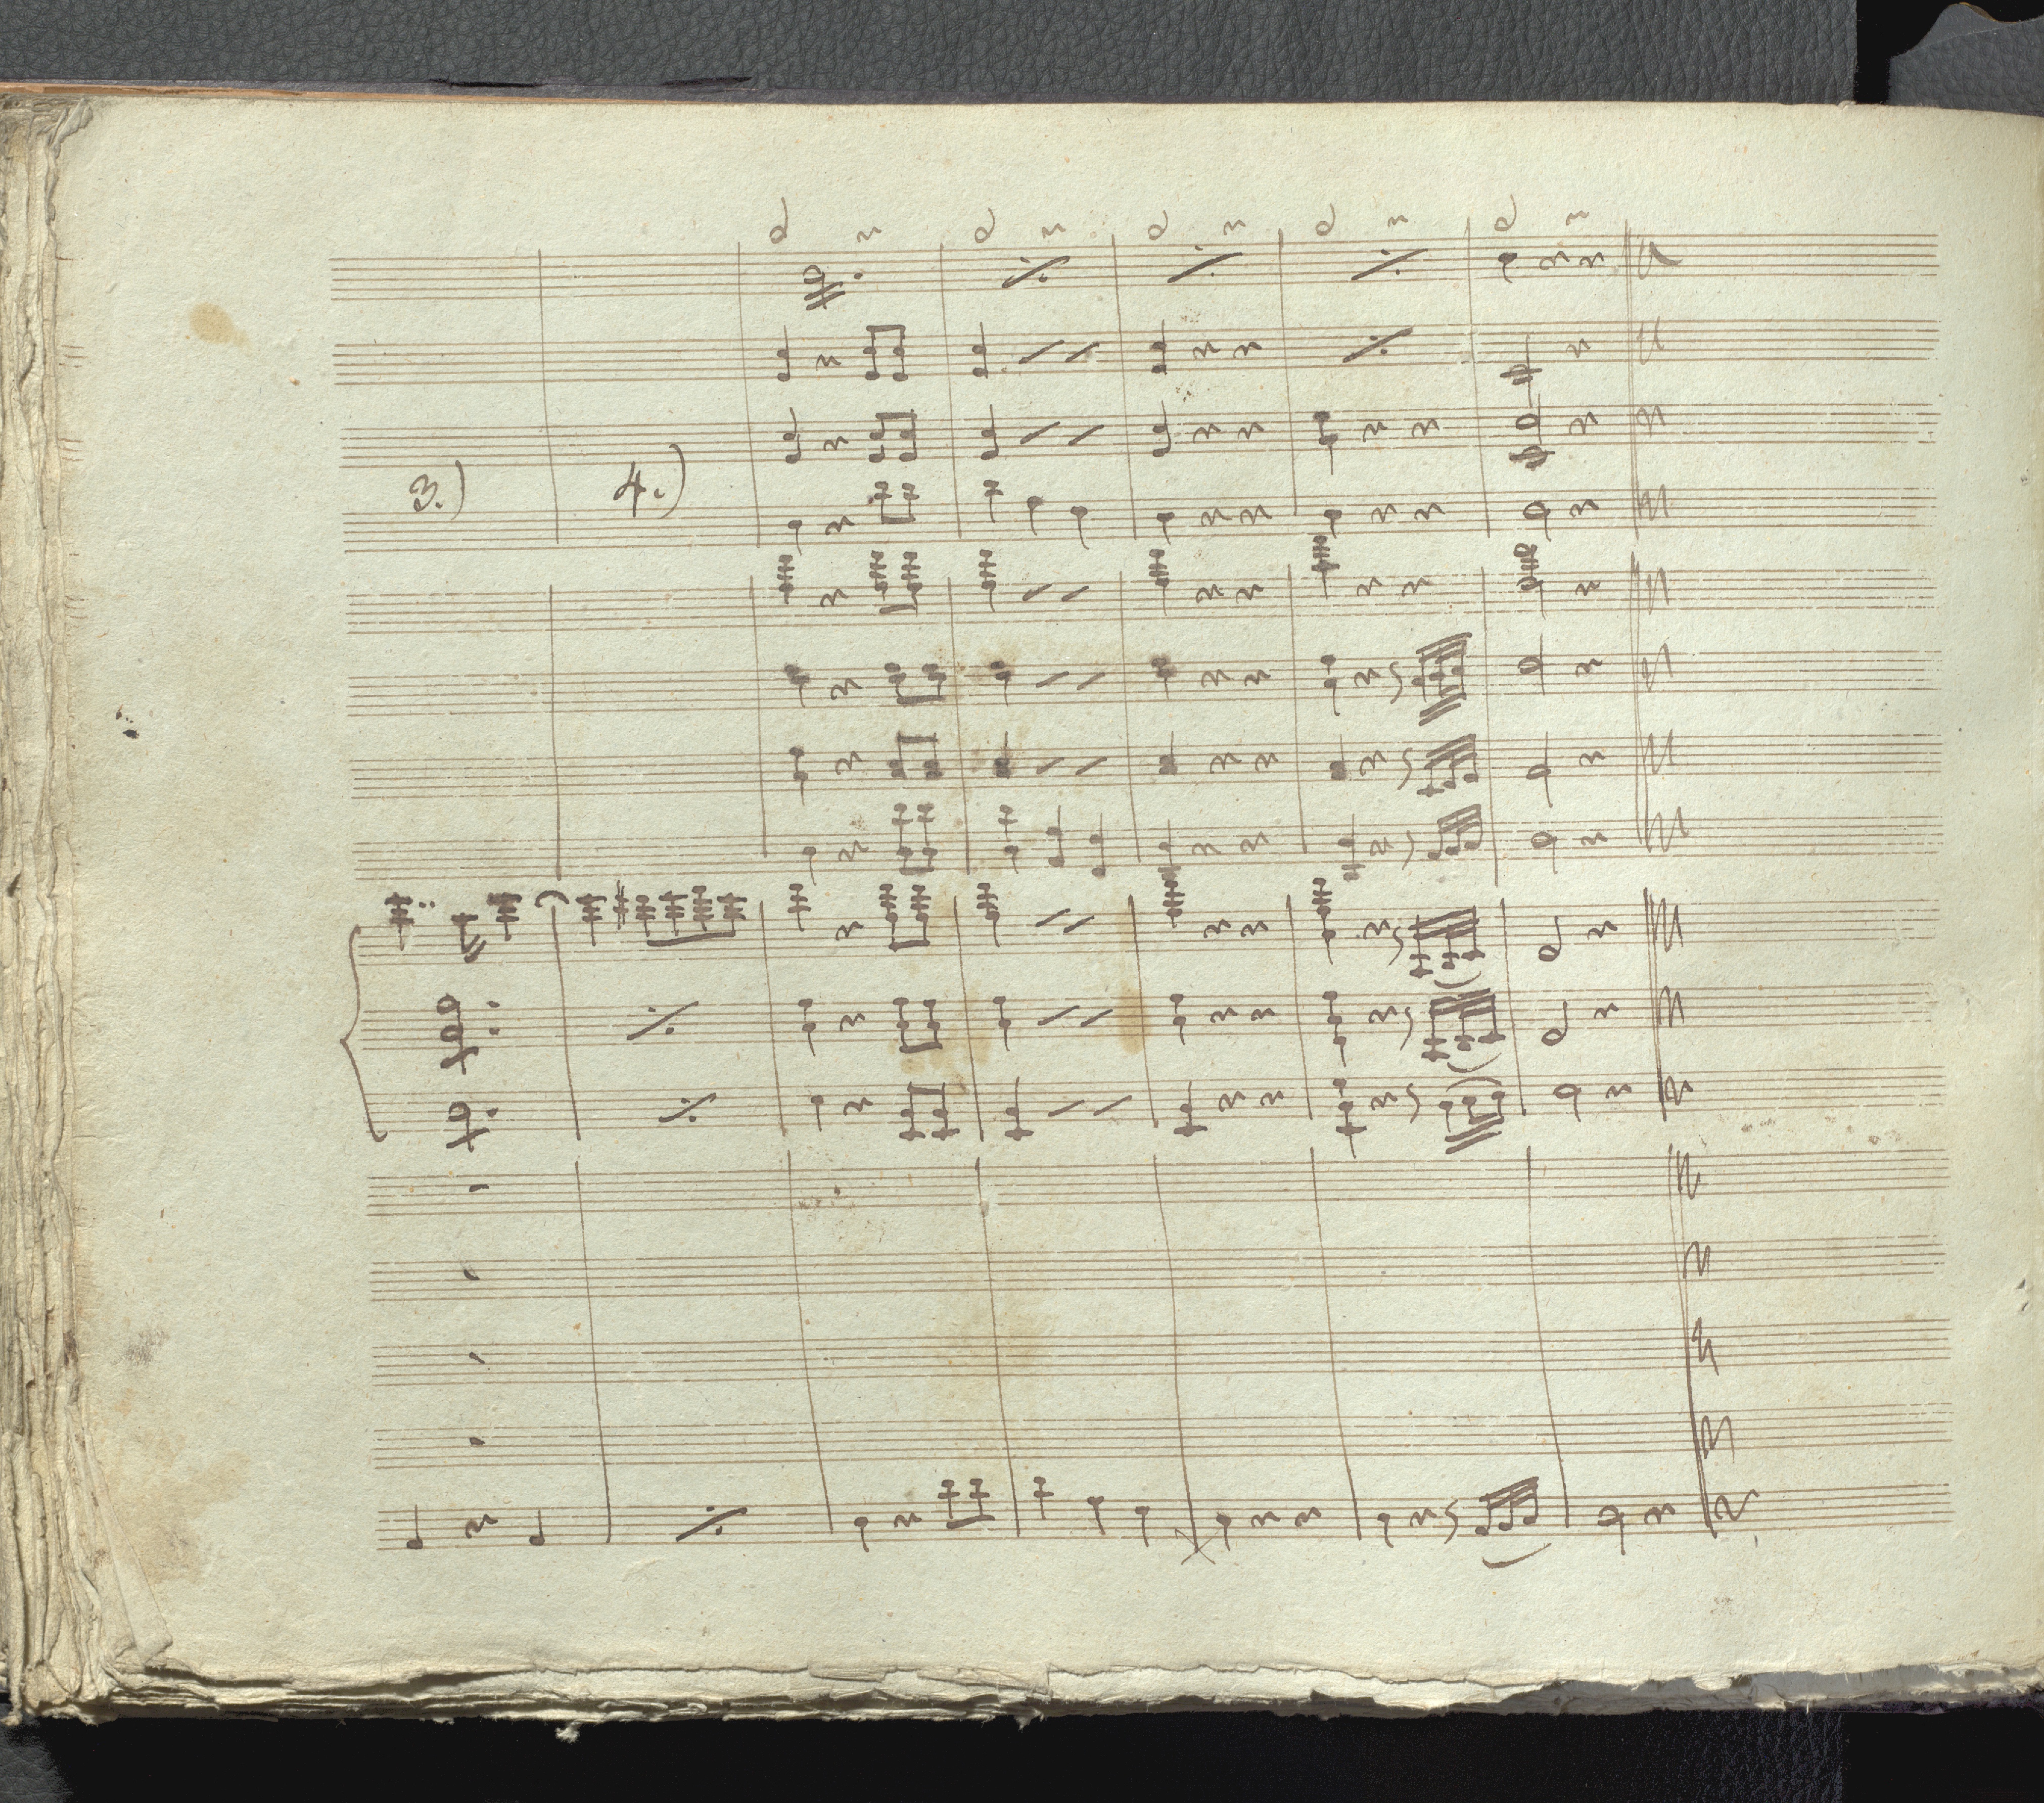 3.) 4.)